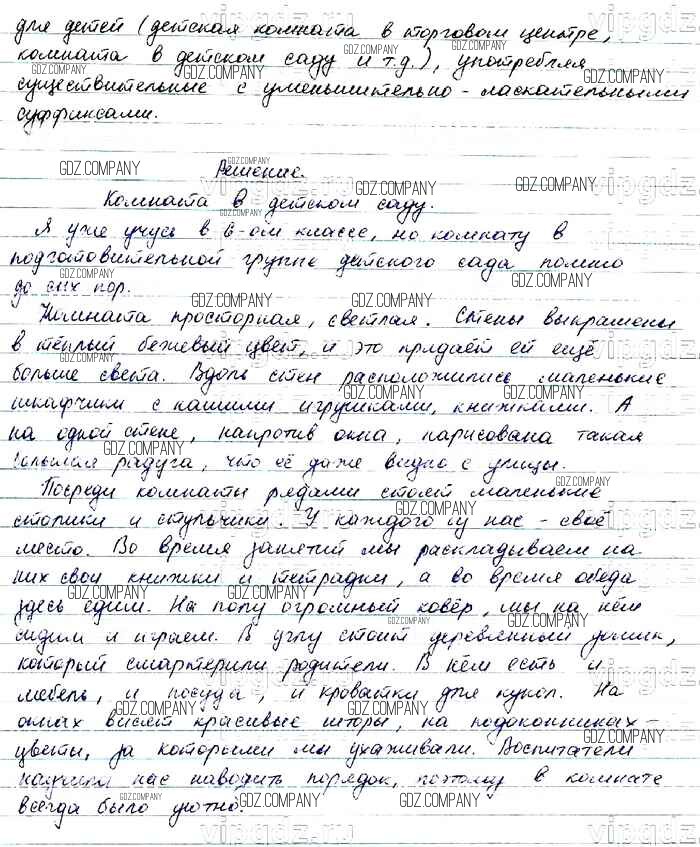 для детей (детская комната в торговом центре,
комната в детском саду и т.д.), употребляя
существительные с уменьшительно-ласкательными
суффиксами.
Решение.
Комната в детском саду.
Я уже учусь в 6-ом классе, но комнату в
подготовительной группе детского сада помню
до сих пор.
Комната просторная, светлая. Стены выкрашены
в тёплый бежевый цвет, и это придаёт ей ещё
больше света. Вдоль стен расположились маленькие
шкафчики с нашими игрушками, книжками. А
на одной стене, напротив окна, нарисована такая
большая радуга, что её даже видно с улицы.
Посреди комнаты рядами стоят маленькие
столики и стульчики. У каждого из нас - своё
место. Во время занятий мы раскладываем на
них свои книжки и тетрадки, а во время обеда
здесь едим. На полу огромный ковёр, мы на нём
сидим и играем. В углу стоит деревянный домик,
который смастерили родители. В нём есть и
мебель, и посуда, и кроватки для кукол. На
окнах висят красивые шторы, на подоконниках -
цветы, за которыми мы ухаживали. Воспитатели
научили нас наводить порядок, поэтому в комнате
всегда было уютно.
GDZ.COMPANY
vipgdz.ru